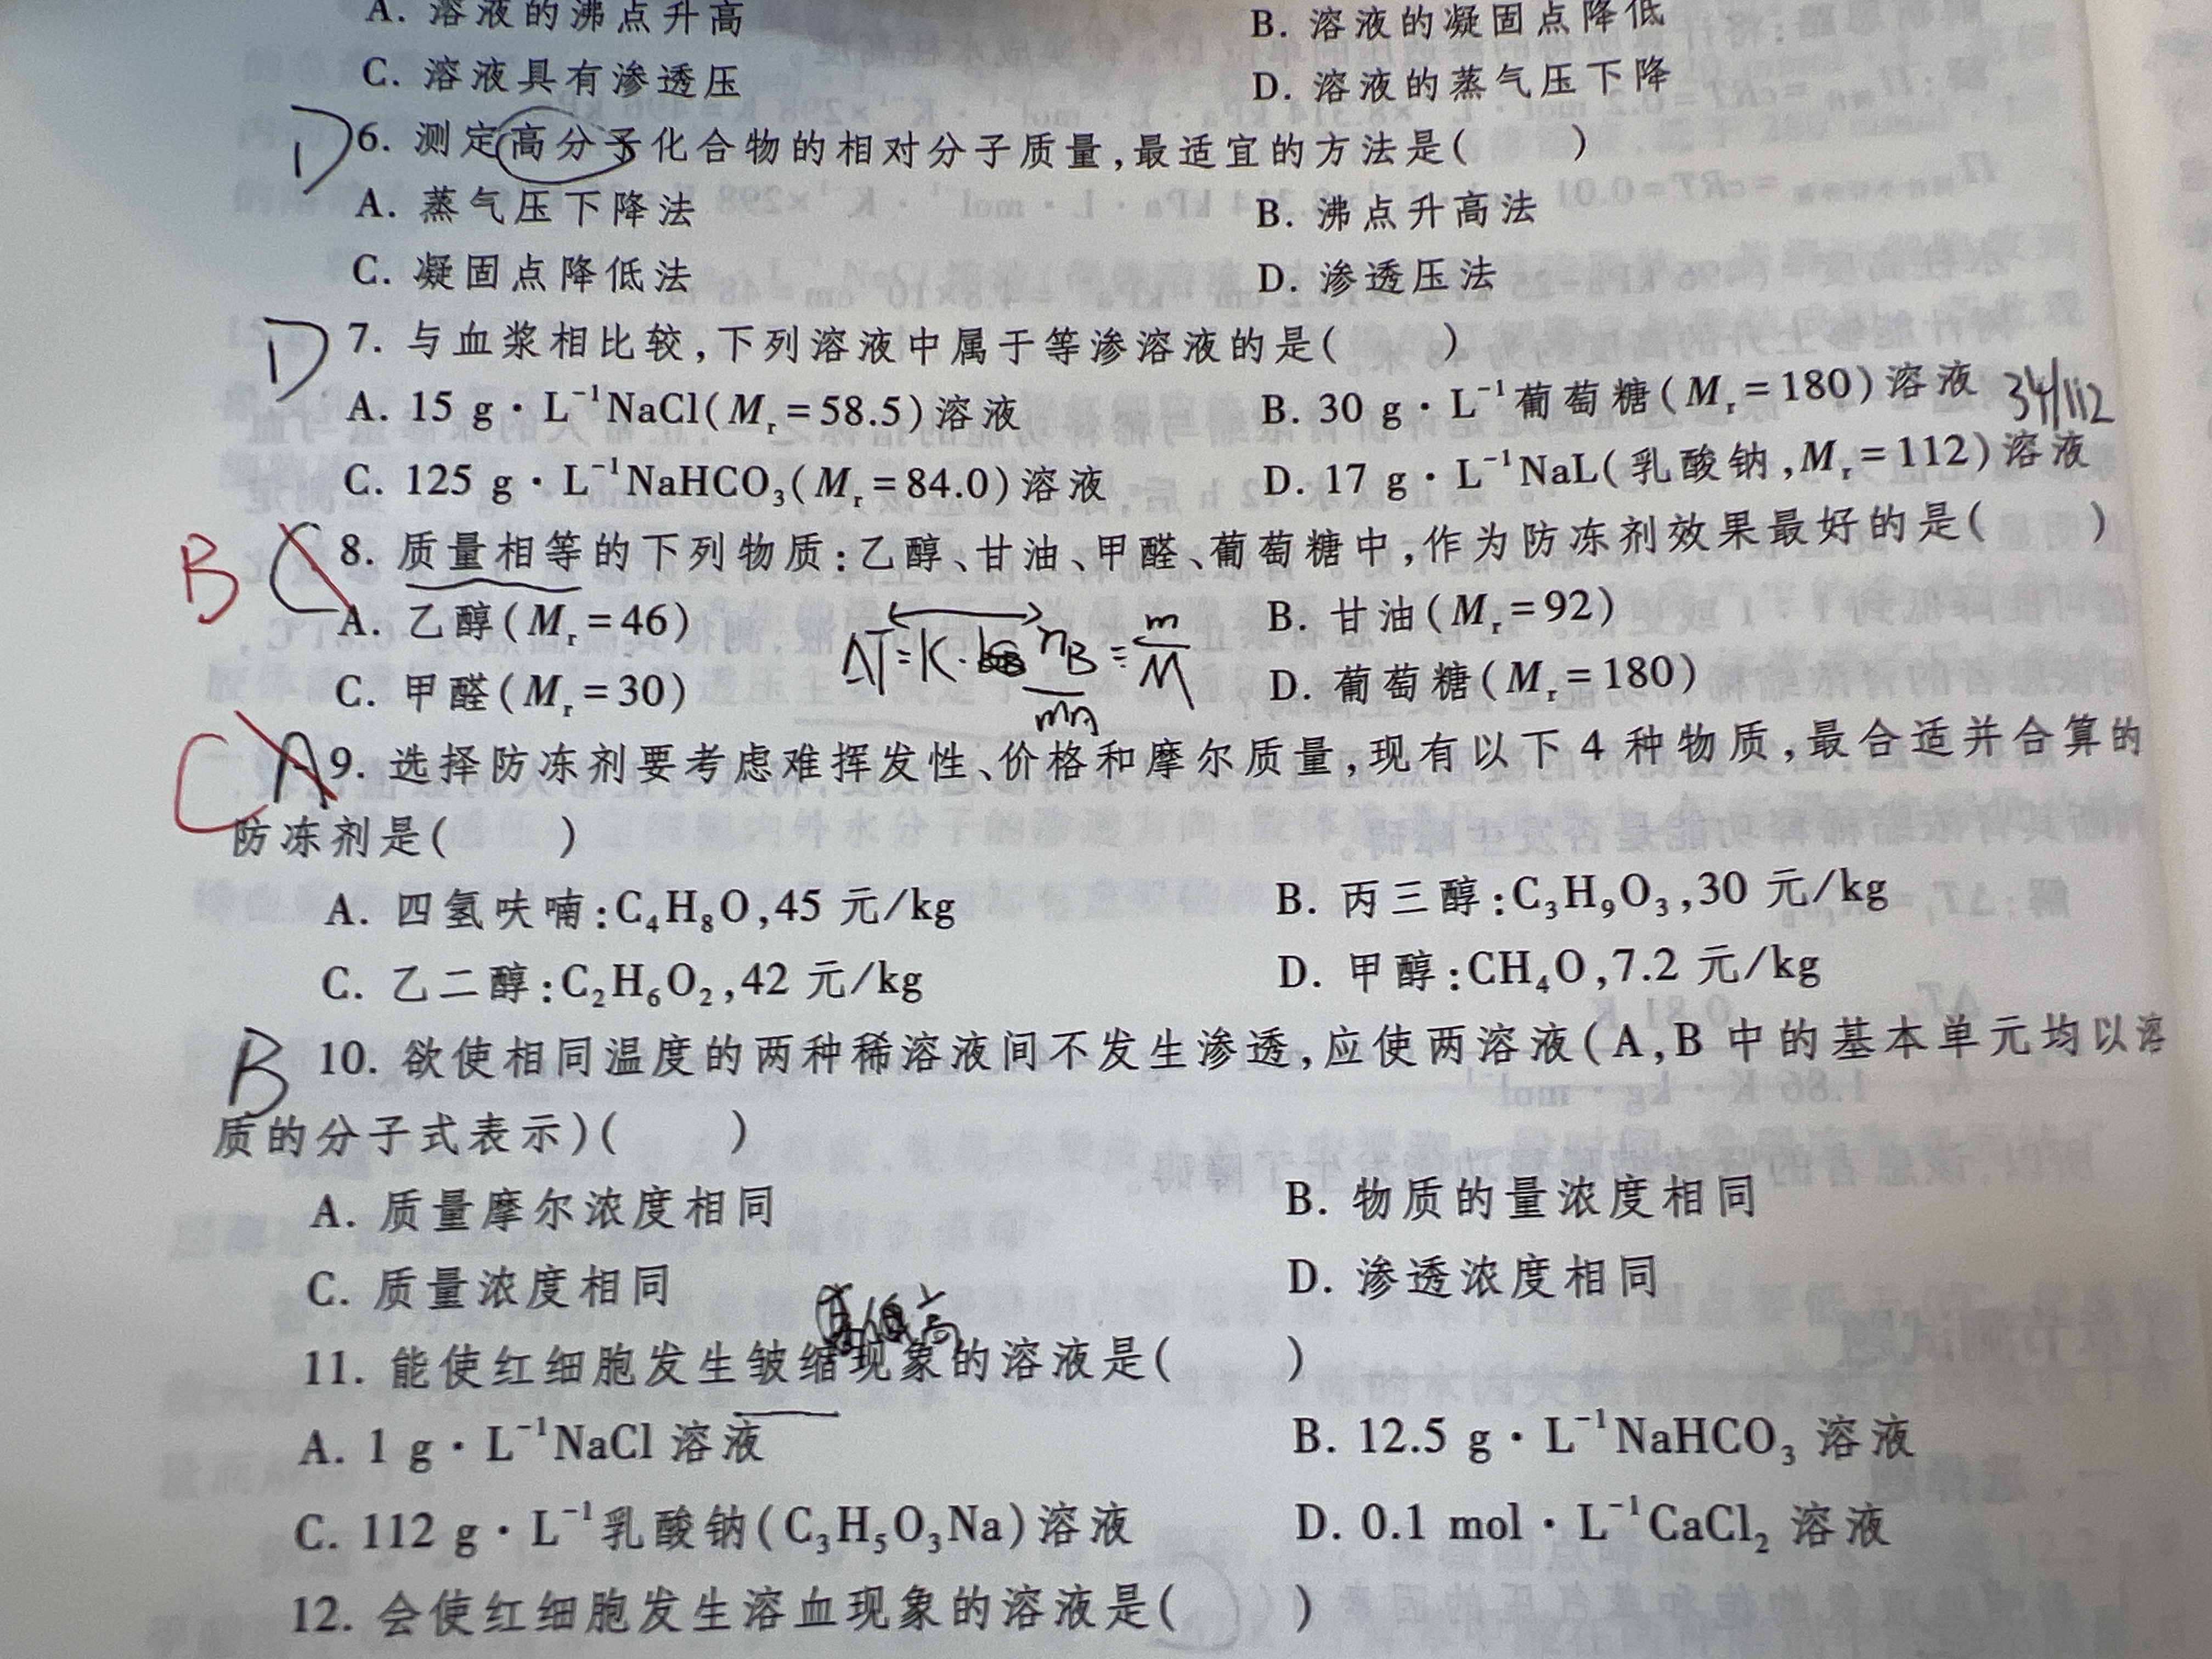 A. 溶液的沸点升高 B. 溶液的凝固点降低
C. 溶液具有渗透压 D. 溶液的蒸气压下降
D 6. 测定高分子化合物的相对分子质量,最适宜的方法是( )
A. 蒸气压下降法 B. 沸点升高法
C. 凝固点降低法 D. 渗透压法
D 7. 与血浆相比较,下列溶液中属于等渗溶液的是( )
A. 15 g·L⁻¹NaCl(Mᵣ=58.5)溶液 B. 30 g·L⁻¹葡萄糖(Mᵣ=180)溶液 34/112
C. 125 g·L⁻¹NaHCO₃(Mᵣ=84.0)溶液 D. 17 g·L⁻¹NaL(乳酸钠,Mᵣ=112)溶液
B C 8. 质量相等的下列物质:乙醇、甘油、甲醛、葡萄糖中,作为防冻剂效果最好的是( )
A. 乙醇(Mᵣ=46) B. 甘油(Mᵣ=92)
ΔT=K· nB/mA = m/M
C. 甲醛(Mᵣ=30) D. 葡萄糖(Mᵣ=180)
C A 9. 选择防冻剂要考虑难挥发性、价格和摩尔质量,现有以下 4 种物质,最合适并合算的
防冻剂是( )
A. 四氢呋喃:C₄H₈O,45 元/kg B. 丙三醇:C₃H₉O₃,30 元/kg
C. 乙二醇:C₂H₆O₂,42 元/kg D. 甲醇:CH₄O,7.2 元/kg
B 10. 欲使相同温度的两种稀溶液间不发生渗透,应使两溶液(A,B 中的基本单元均以溶
质的分子式表示)( )
A. 质量摩尔浓度相同 B. 物质的量浓度相同
C. 质量浓度相同 D. 渗透浓度相同
高
11. 能使红细胞发生皱缩现象的溶液是( )
A. 1 g·L⁻¹NaCl 溶液 B. 12.5 g·L⁻¹NaHCO₃ 溶液
C. 112 g·L⁻¹乳酸钠(C₃H₅O₃Na)溶液 D. 0.1 mol·L⁻¹CaCl₂ 溶液
12. 会使红细胞发生溶血现象的溶液是( )